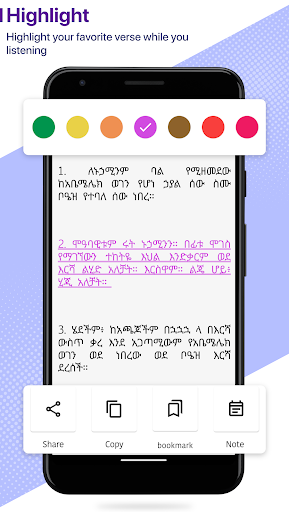 Highlight
Highlight your favorite verse while you
listening
1. ለኑኃሚንም ባል የሚዘመደው
ከአቤሜሌክ ወገን የሆነ ኃያል ሰው ስሙ
ቦዔዝ የተባለ ሰው ነበረ።
2. ሞዓባዊቱም ሩት ኑኃሚንን። በፊቱ ሞገስ
የማገኘውን ተከትዬ እህል እንድቃርም ወደ
እርሻ ልሂድ አለቻት። እርስዋም። ልጄ ሆይ፥
ሂጂ አለቻት።
3. ሄደችም፥ ከአጫጆችም በኋኋላ በእርሻ
ውስጥ ቃረ እንደ አጋጣሚውም የአቤሜሌክ
ወገን ወደ ነበረው ወደ ቦዔዝ እርሻ
ደረሰች።
Share Copy bookmark Note